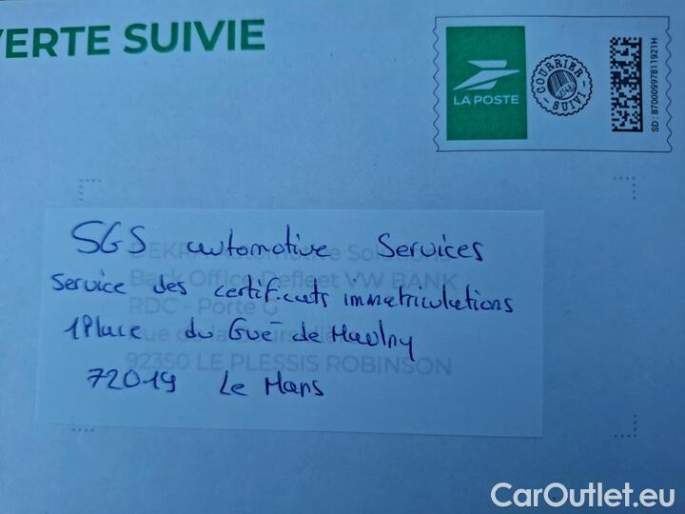 VERTE SUIVIE
LA POSTE
COURRIER
SUIVI
SD : 87000997811921H
SGS automotive Services
Service des certificats immatriculations
1 Place du Gué de Maulny
72019 Le Mans
DEKRA
Back Office Refleet VW BANK
RDC - Porte G
92350 LE PLESSIS ROBINSON
CarOutlet.eu